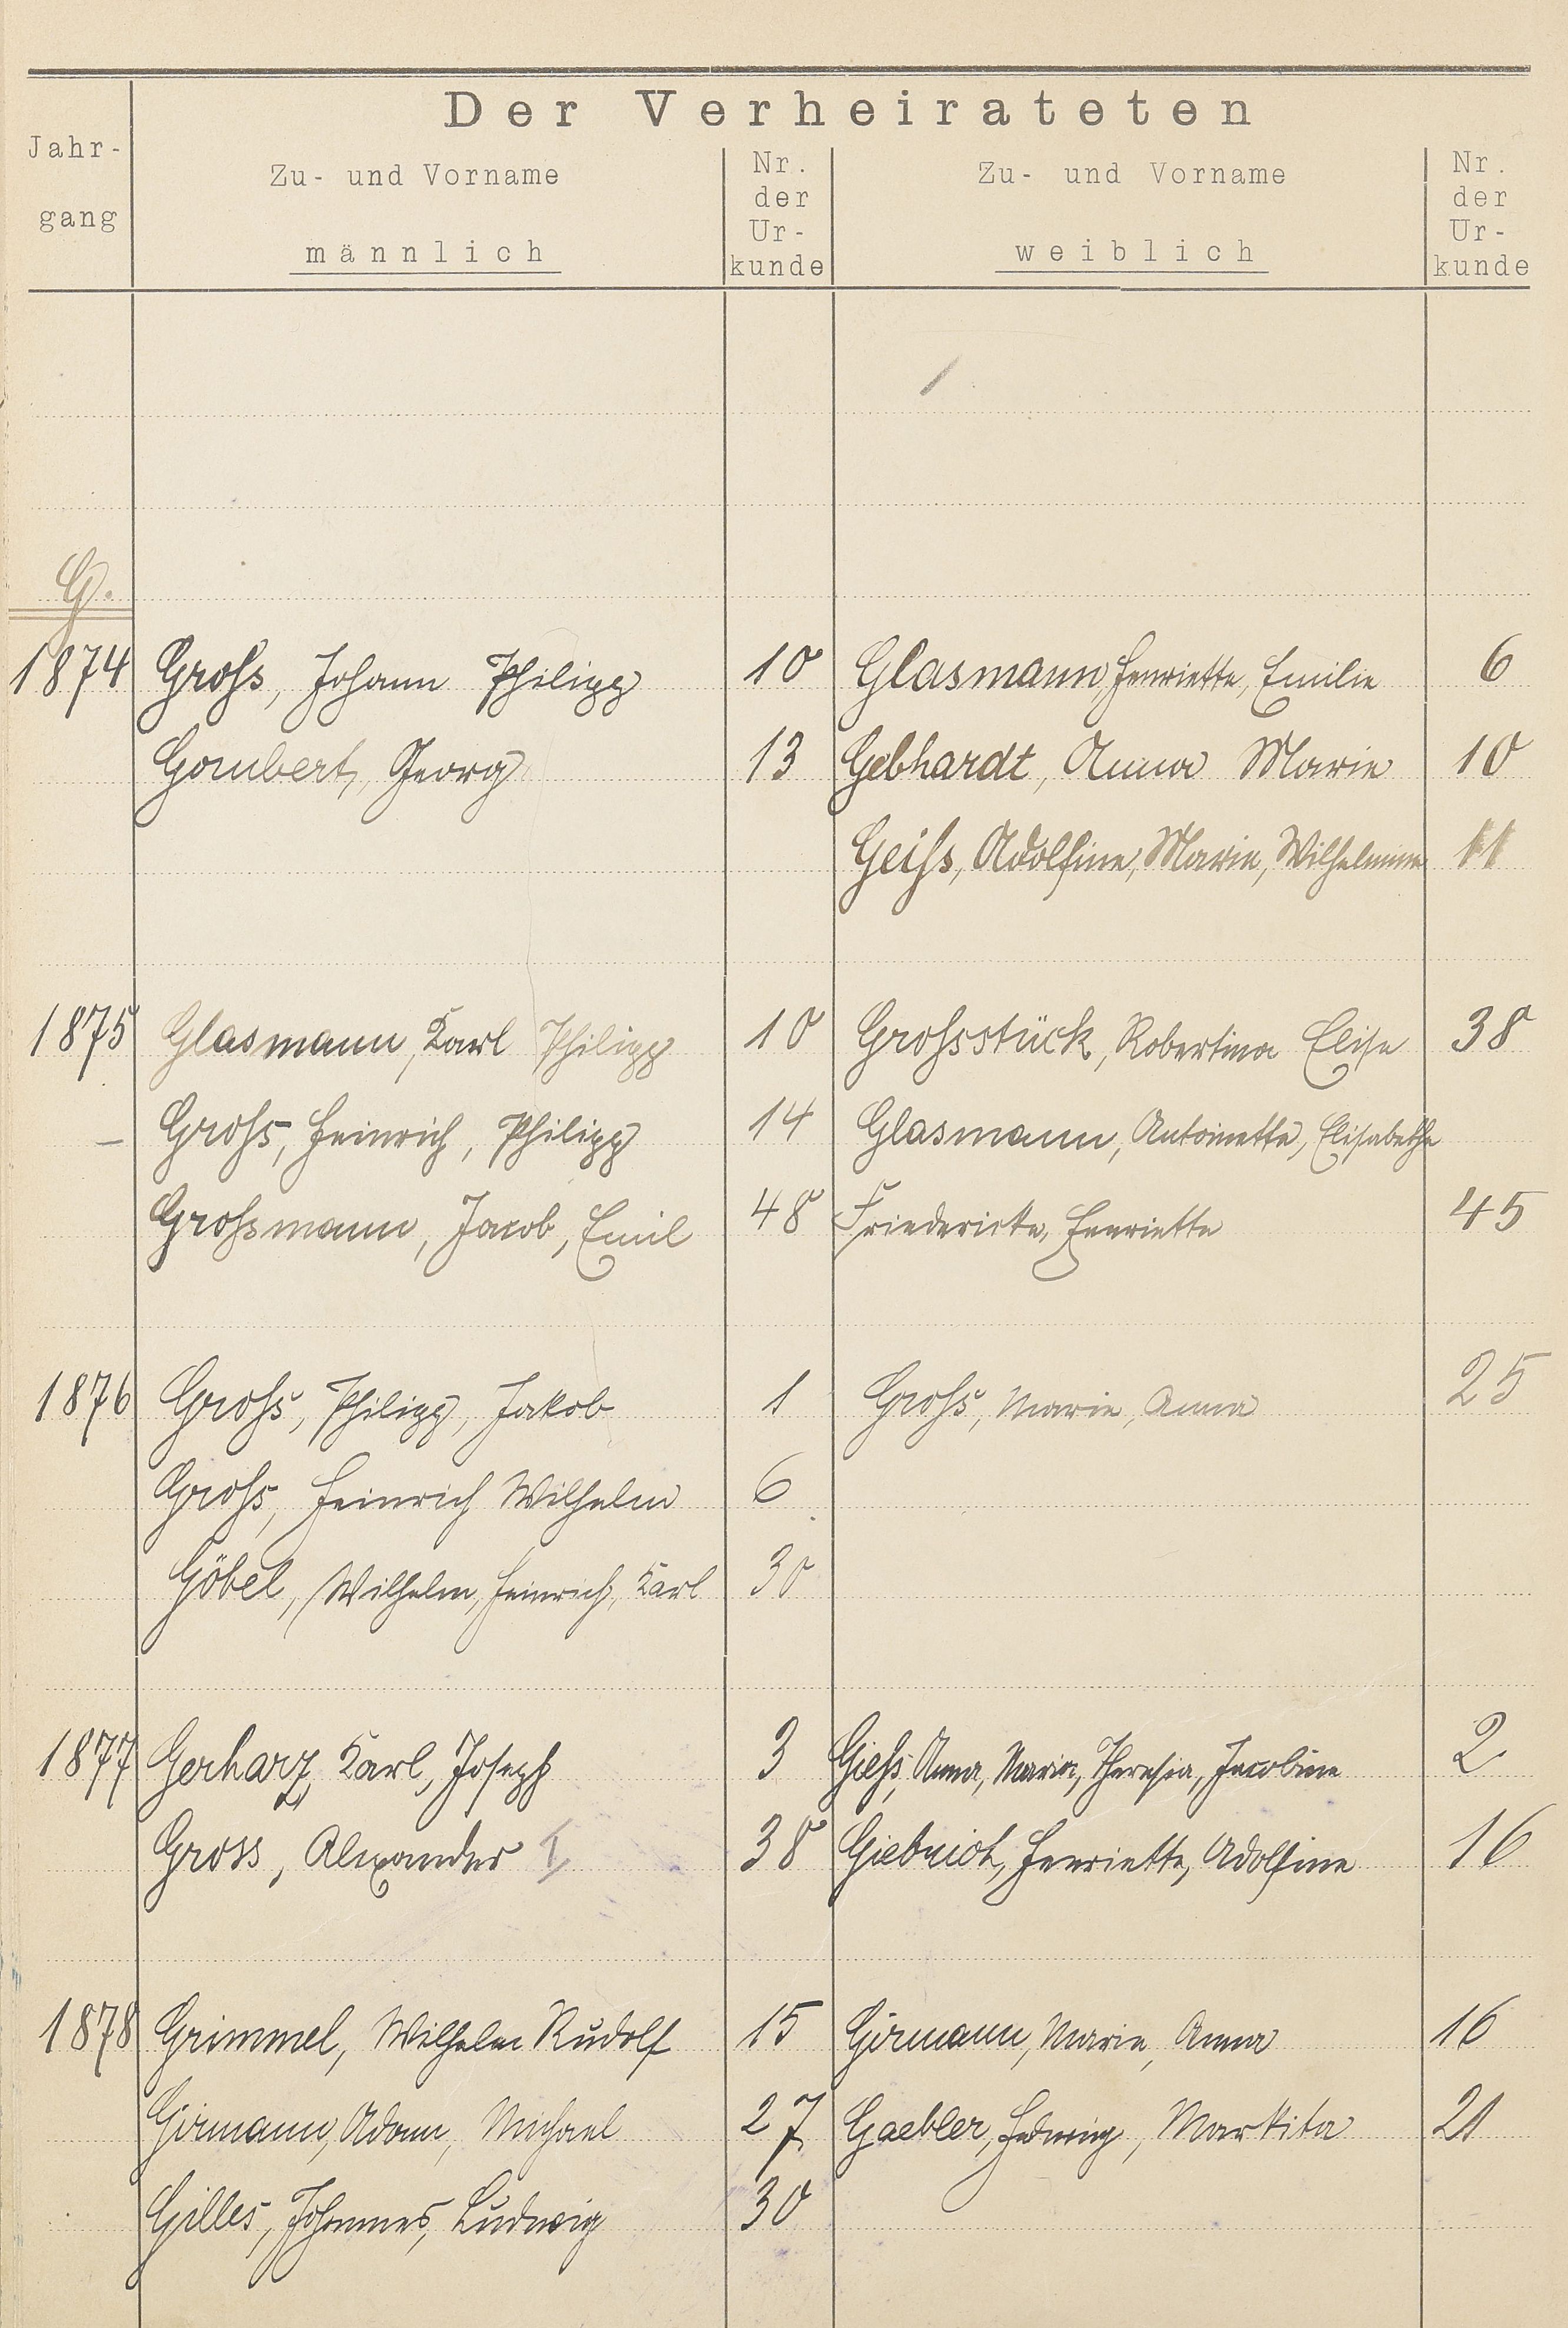 Der Verheirateten
Jahr-
gang
Zu- und Vorname
männlich
Nr.
der
Ur-
kunde
Zu- und Vorname
weiblich
Nr.
der
Ur-
kunde
G.
1874 Groß, Johann Philipp 10 Glasmann, Henriette, Emilie 6
Gombert, Georg 13 Gebhardt, Anna Marie 10
Geiß, Adolfine, Marie, Wilhelmine 11
1875 Glasmann, Karl Philipp 10 Großstück, Robertina Elise 38
Groß, Heinrich, Philipp 14 Glasmann, Antoinette, Elisabethe
Großmann, Jacob, Emil 48 Friedericke, Henriette 45
1876 Groß, Philipp, Jakob 1 Groß, Marie, Anna 25
Groß, Heinrich Wilhelm 6
Göbel, Wilhelm, Heinrich, Karl 30
1877 Gerharz, Karl, Joseph 3 Gieß, Anna, Maria, Theresia, Jacobine 2
Gross, Alexander I 38 Henriette, Adolfine 16
1878 Grimmel, Wilhelm Rudolf 15 Girmann, Marie, Anna 16
Girmann, Adam, Michael 27 Gaebler, Hedwig, Markita 21
Gilles, Johannes, Ludwig 30